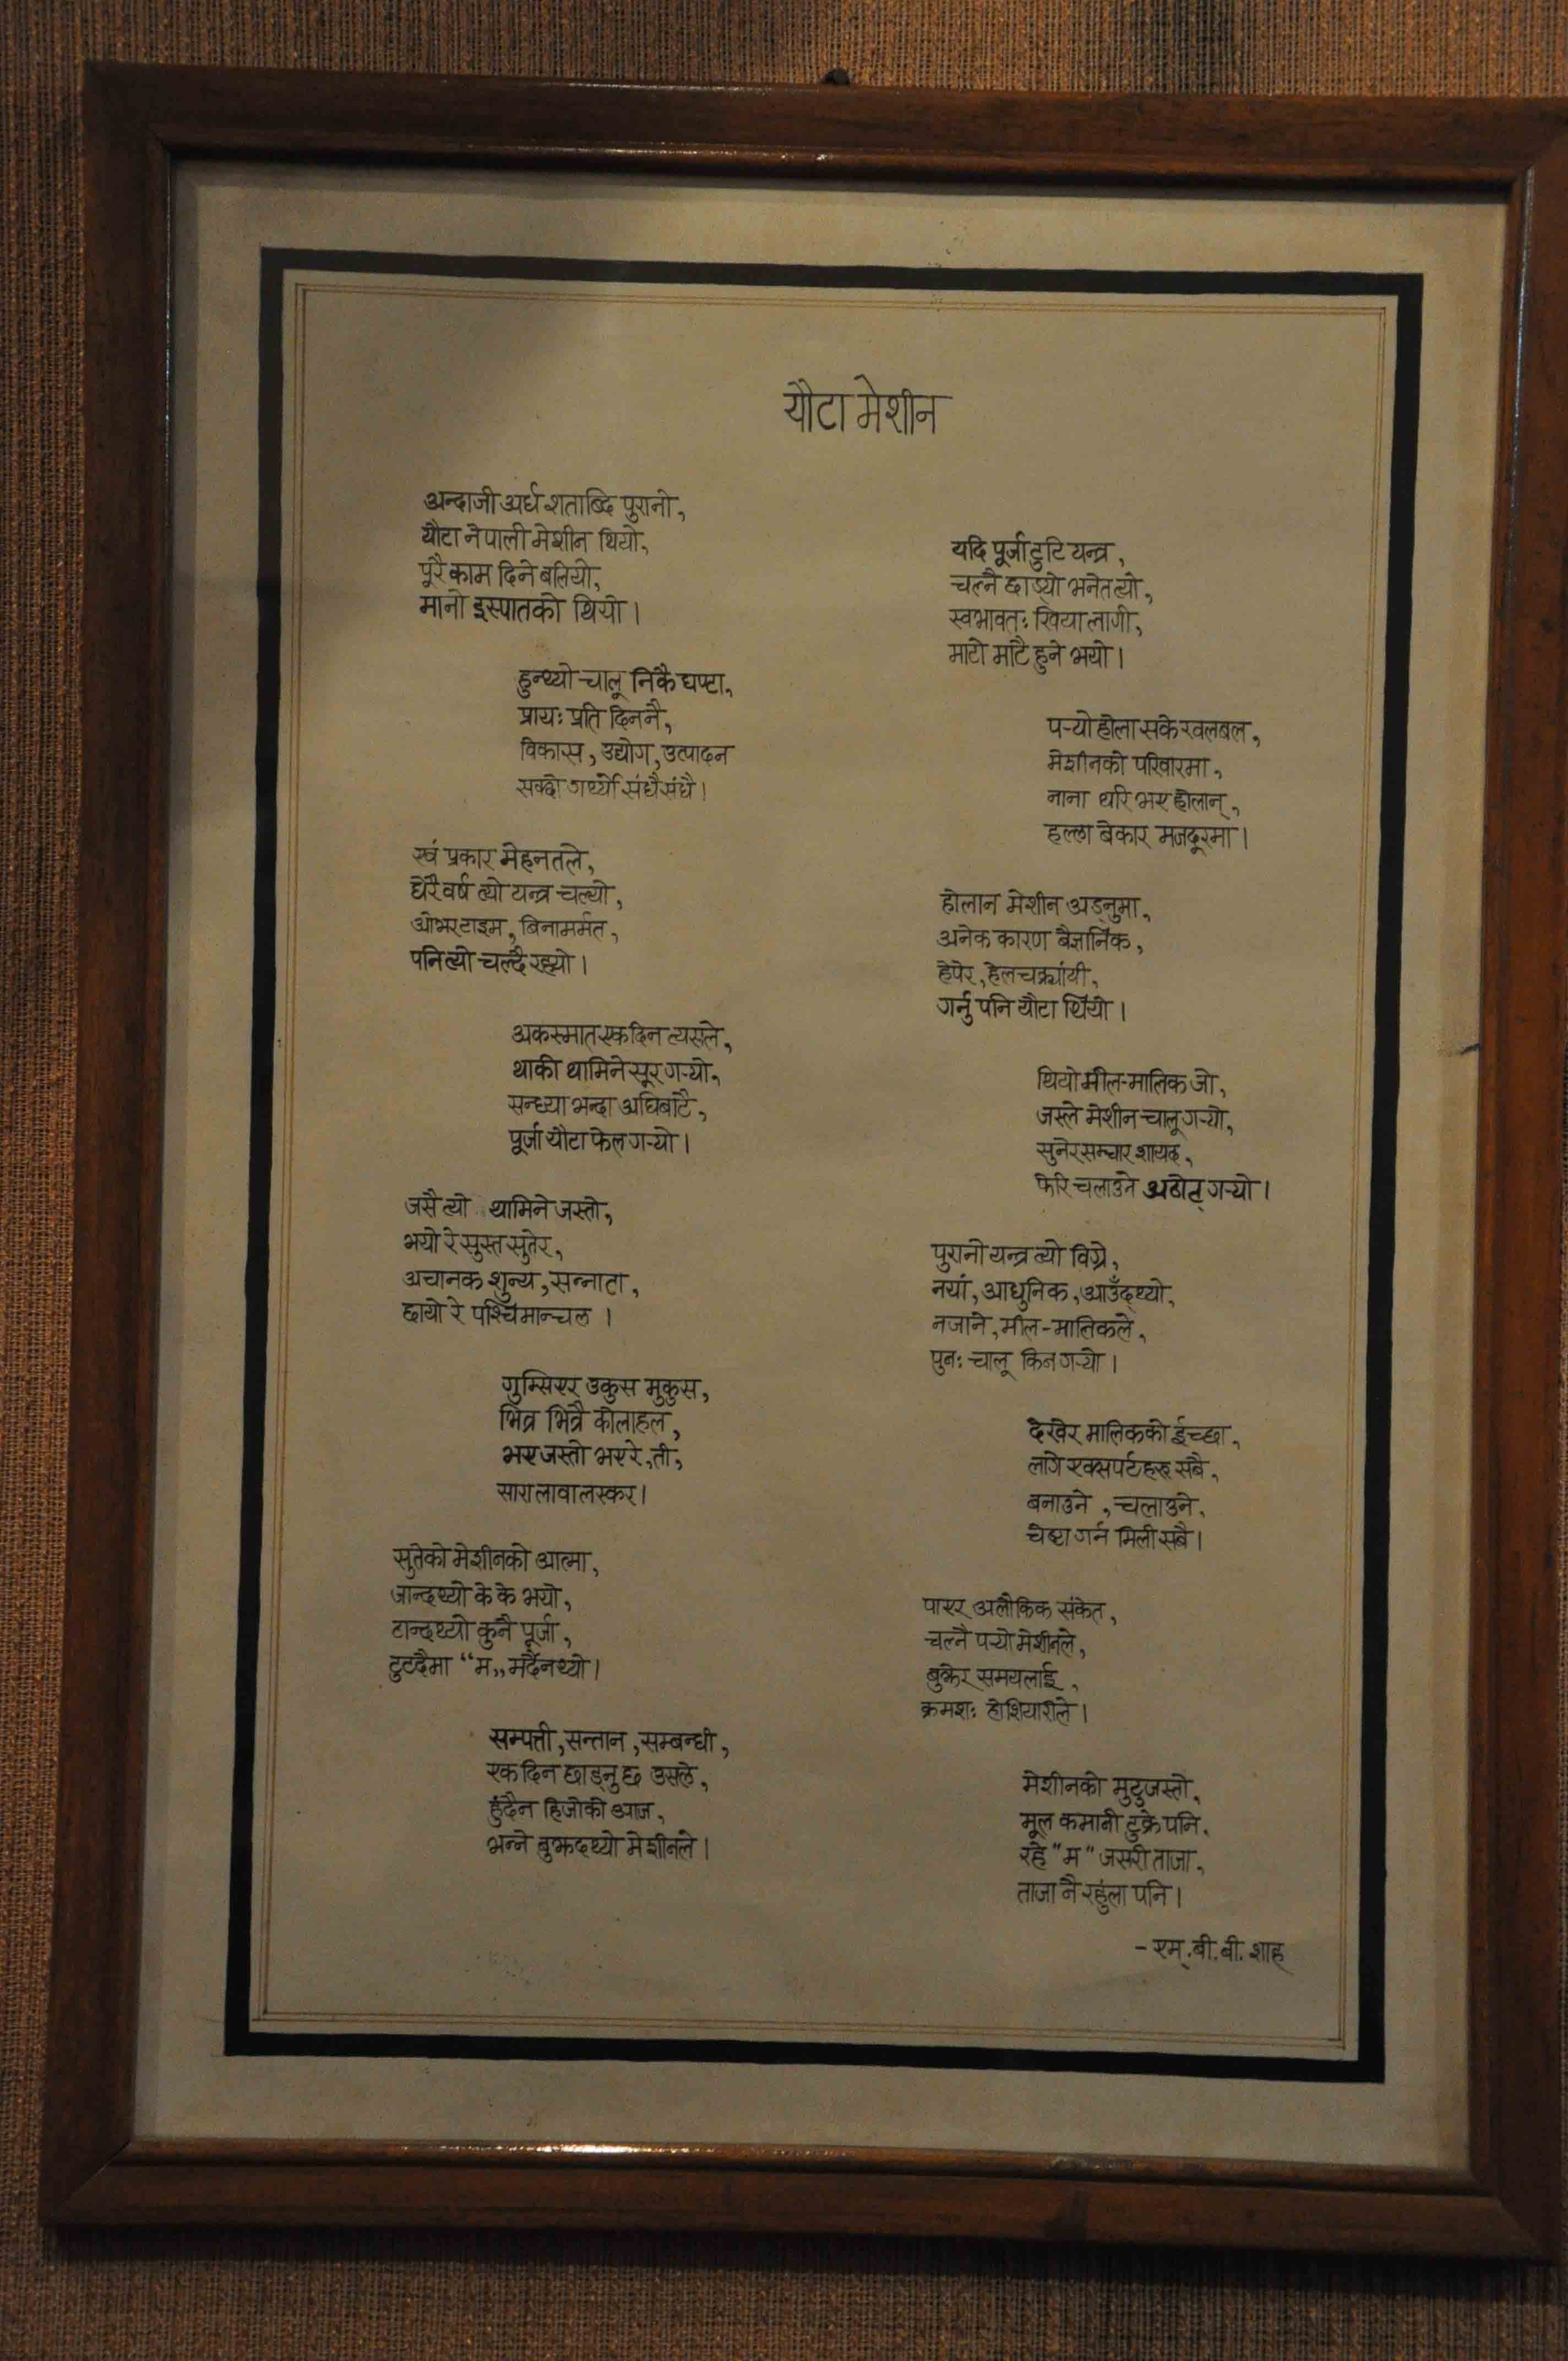 यौटा मेशीन
अन्दाजी अर्ध शताब्दि पुरानो,
यौटा नेपाली मेशीन थियो,
पूरै काम दिने बलियो,
मानो इस्पातको थियो।
हुन्थ्यो चालू निकै घण्टा,
प्रायः प्रति दिननै,
विकास, उद्योग, उत्पादन
सक्दो गर्थ्यो संधै संधै।
एवं प्रकार मेहनतले,
धेरै वर्ष त्यो यन्त्र चल्यो,
ओभरटाइम, बिनामर्मत,
पनि त्यो चल्दै रह्यो।
अकस्मात एकदिन त्यसले,
थाकी थामिने सूर गर्‍यो,
सन्ध्या भन्दा अघिबाटै,
पूर्जा यौटा फेल गर्‍यो।
जसै त्यो थामिने जस्तो,
भयो रे सुस्त सुतेर,
अचानक शुन्य, सन्नाटा,
छायो रे पश्चिमान्चल।
गुम्सिएर उकुस मुकुस,
भित्र भित्रै कोलाहल,
भए जस्तो भए रे, ती,
सारा लावालस्कर।
सुतेको मेशीनको आत्मा,
जान्दथ्यो के के भयो,
ठान्दथ्यो कुनै पूर्जा,
टुटदैमा “म„ मर्दैनथ्यो।
सम्पत्ती, सन्तान, सम्बन्धी,
एक दिन छाड्नु छ उसले,
हुंदैन हिजोको आज,
भन्ने बुझदथ्यो मेशीनले।
यदि पूर्जा टुटि यन्त्र,
चल्नै छाड्यो भनेत त्यो,
स्वभावतः खिया लागी,
माटो माटै हुने भयो।
पर्‍यो होला सके खलबल,
मेशीनको परिवारमा,
नाना थरि भए होलान्,
हल्ला बेकार मजदूरमा।
होलान मेशीन अड्नुमा,
अनेक कारण बैज्ञानिक,
हेपेर, हेलचक्र्यांयी,
गर्नु पनि यौटा थियो।
थियो मील-मालिक जो,
जस्ले मेशीन चालू गर्‍यो,
सुनेर सम्चार शायद,
फेरि चलाउने अठोट् गर्‍यो।
पुरानो यन्त्र त्यो विग्रे,
नयां, आधुनिक, आउँद्थ्यो,
नजाने, मील-मालिकले,
पुनः चालू किन गर्‍यो।
देखेर मालिकको ईच्छा,
लागे एक्सपर्टहरु सबै,
बनाउने, चलाउने,
चेष्टा गर्न मिली सबै।
पाएर अलौकिक संकेत,
चल्नै पर्‍यो मेशीनले,
बुझेर समयलाई,
क्रमशः होशियारीले।
मेशीनको मुटुजस्तो,
मूल कमानी टुक्रे पनि,
रहे "म" जसरी ताजा,
ताजा नै रहुंला पनि।
- एम्. बी. बी. शाह